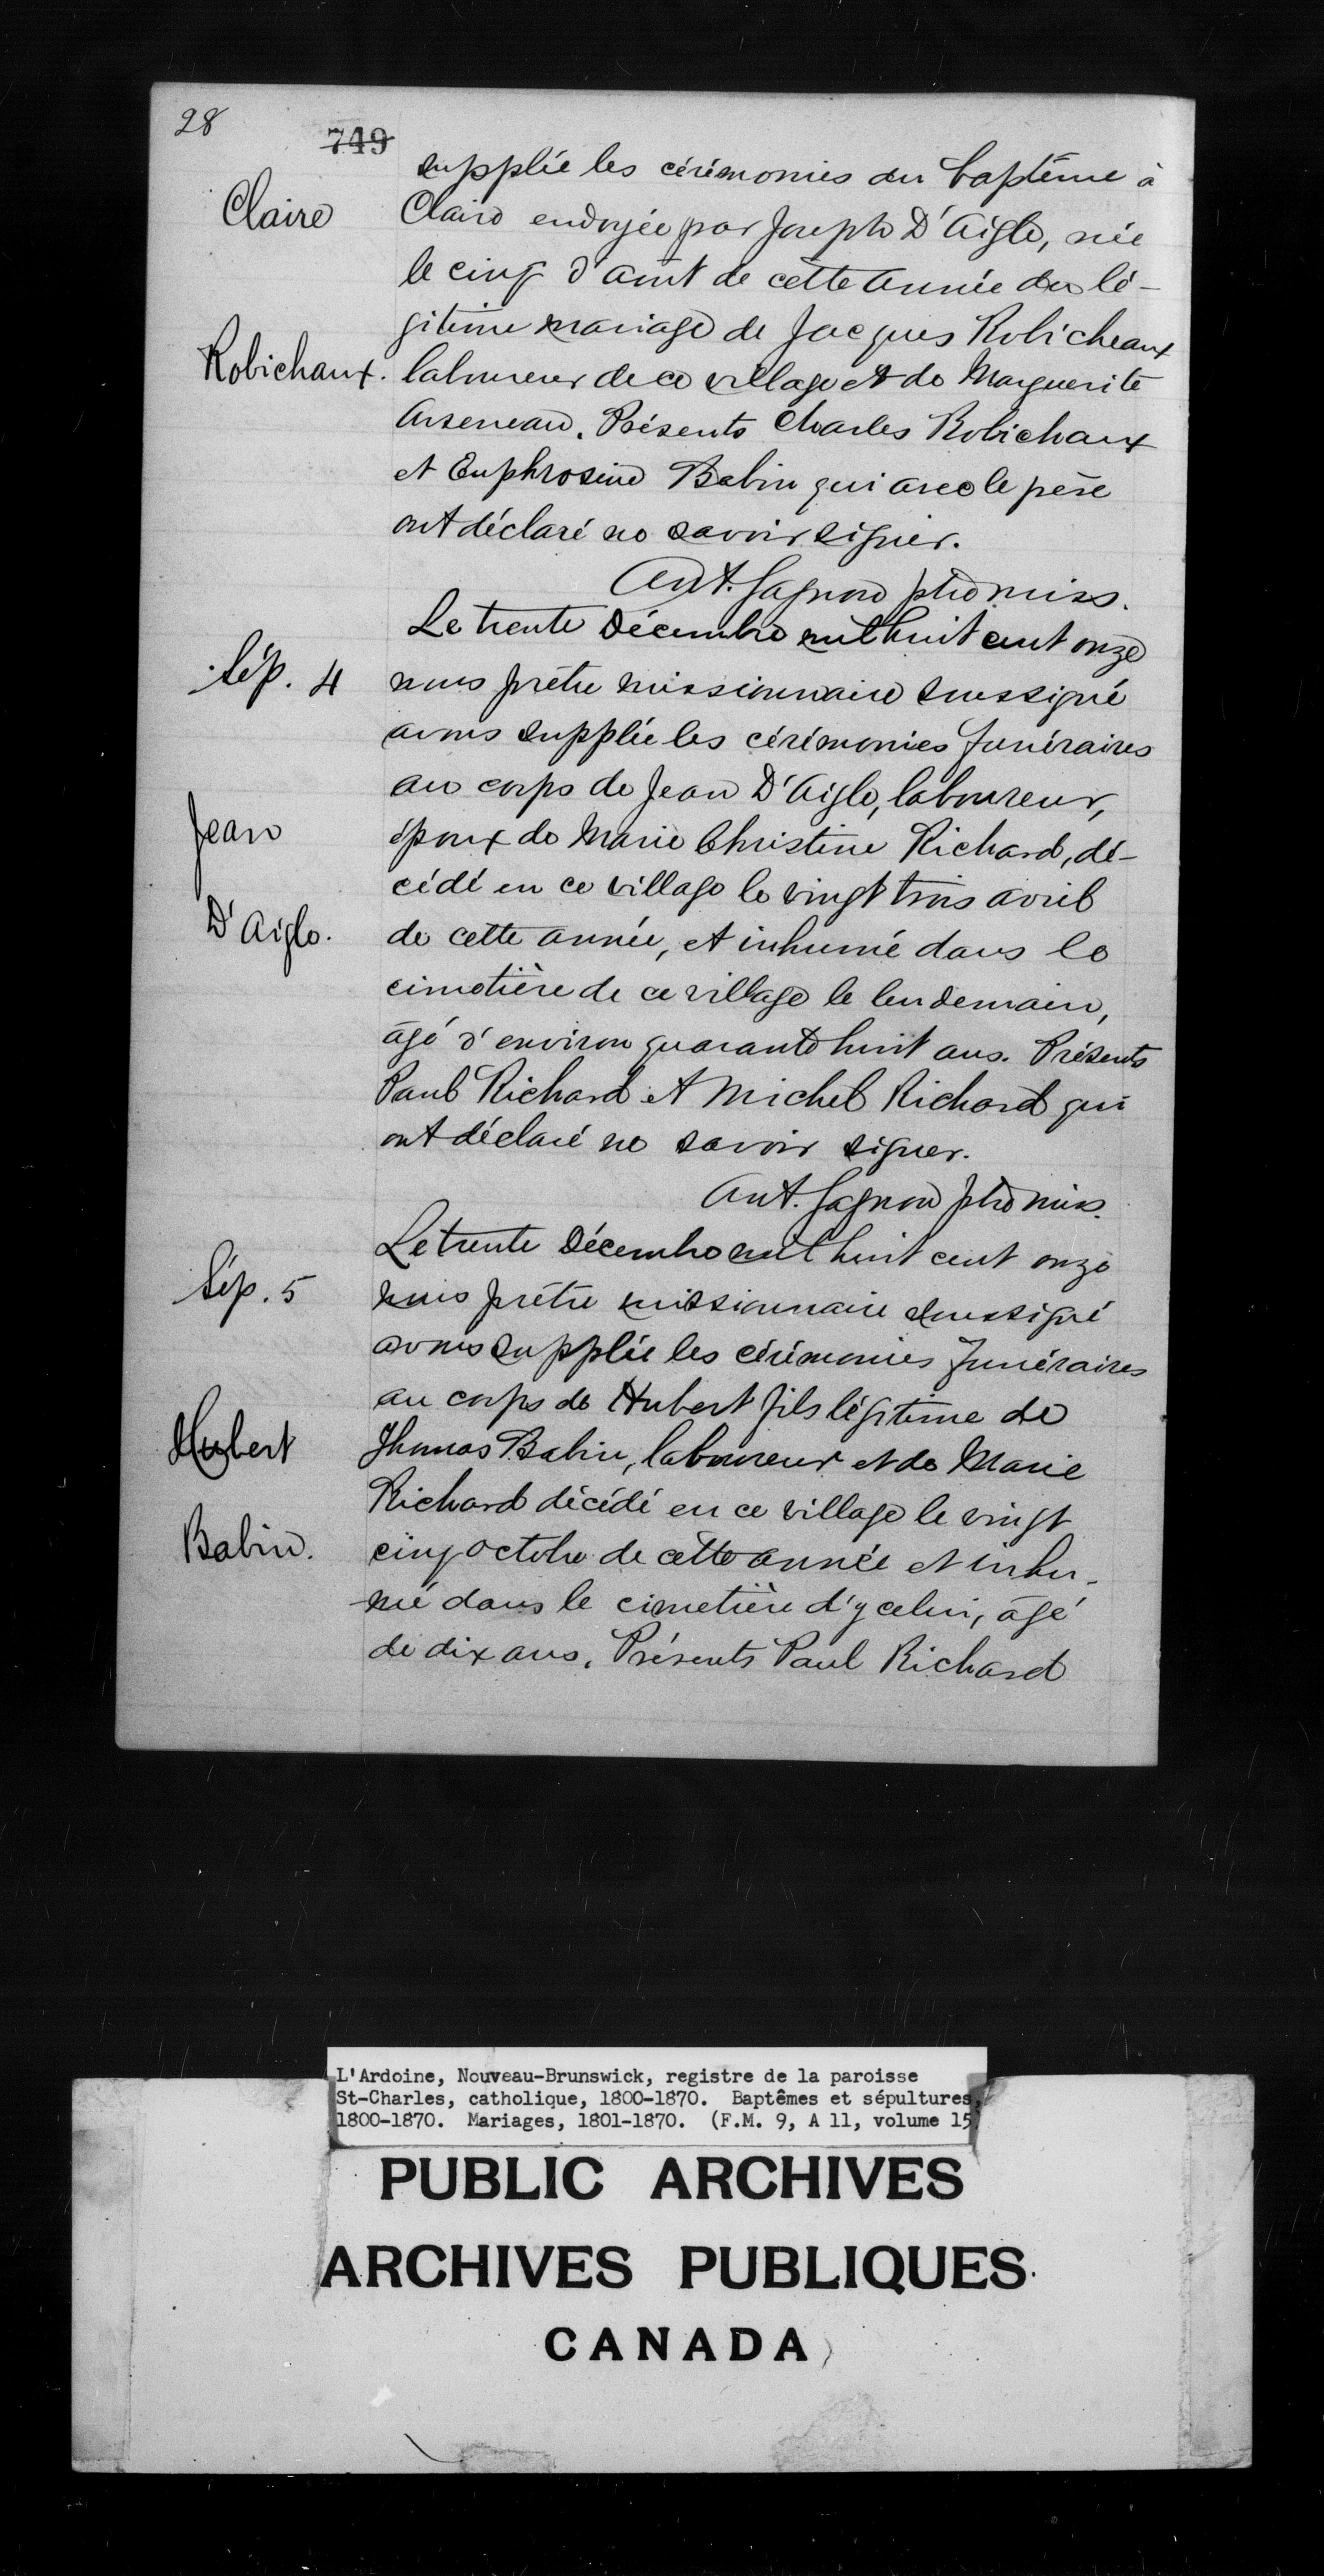 28
749
supplée les cérémonies du baptême à
Claire
Claire ondoyée par Joseph D'Aigle, née
le cinq d'août de cette année du lé-
gitime mariage de Jacques Robicheaux
Robichaux.
laboureur de ce village et de Marguerite
Arseneau. Présents Charles Robichaux
et Euphrosine Babin qui avec le père
ont déclaré ne savoir signer.
Ant. Gagnon ptre miss.
Le trente Décembre mil huit cent onze
Sép. 4
nous prêtre missionnaire soussigné
avons supplée les cérémonies funéraires
au corps de Jean D'Aigle, laboureur,
Jean
époux de Marie Christine Richard, dé-
cédé en ce village le vingt trois avril
D'Aigle.
de cette année, et inhumé dans le
cimetière de ce village le lendemain,
âgé d'environ quarante huit ans. Présents
Paul Richard et Michel Richard qui
ont déclaré ne savoir signer.
Ant. Gagnon ptre miss.
Le trente Décembre mil huit cent onze
Sép. 5
nous prêtre missionnaire soussigné
avons supplée les cérémonies funéraires
au corps de Hubert fils légitime de
Hubert
Thomas Babin, laboureur et de Marie
Richard décédé en ce village le vingt
Babin.
cinq octobre de cette année et inhu-
mé dans le cimetière d'ycelui, âgé
de dix ans. Présents Paul Richard
L'Ardoine, Nouveau-Brunswick, registre de la paroisse
St-Charles, catholique, 1800-1870. Baptêmes et sépultures,
1800-1870. Mariages, 1801-1870. (F.M. 9, A 11, volume 15)
PUBLIC ARCHIVES
ARCHIVES PUBLIQUES
CANADA